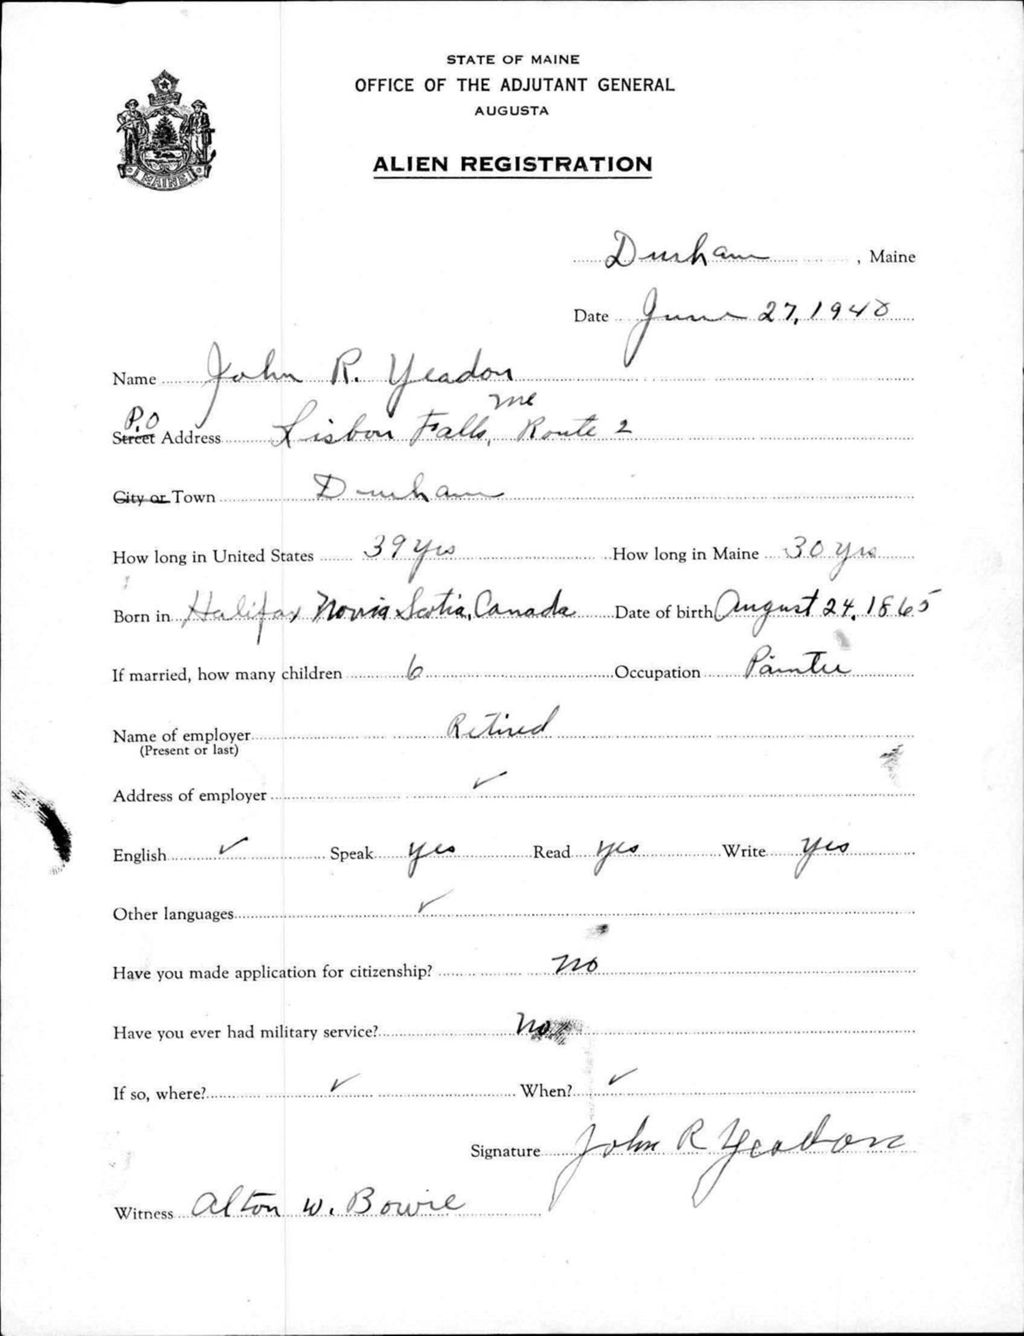 STATE OF MAINE
OFFICE OF THE ADJUTANT GENERAL
AUGUSTA
MAINE
ALIEN REGISTRATION
Durham, Maine
Date June 27, 1940
Name John R. Yeadon
P.O Me
Street Address Lisbon Falls, Route 2
City or Town Durham
How long in United States 39 yrs How long in Maine 30 yrs
Born in Halifax Novia Scotia, Canada Date of birth August 24, 1865
If married, how many children 6 Occupation Painter
Name of employer Retired
(Present or last)
Address of employer ✓
English ✓ Speak yes Read yes Write yes
Other languages ✓
Have you made application for citizenship? no
Have you ever had military service? no
If so, where? ✓ When? ✓
Signature John R Yeadon
Witness Alton W. Bowie